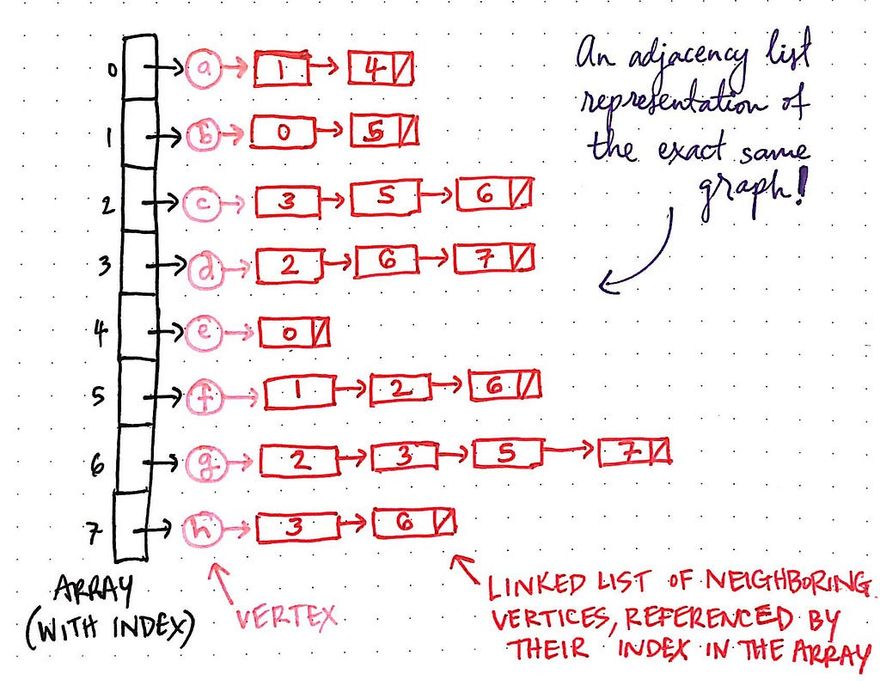 An adjacency list
representation of
the exact same
graph!
0 a 1 4
1 b 0 5
2 c 3 5 6
3 d 2 6 7
4 e 0
5 f 1 2 6
6 g 2 3 5 7
7 h 3 6
ARRAY
(WITH INDEX)
VERTEX
LINKED LIST OF NEIGHBORING
VERTICES, REFERENCED BY
THEIR INDEX IN THE ARRAY